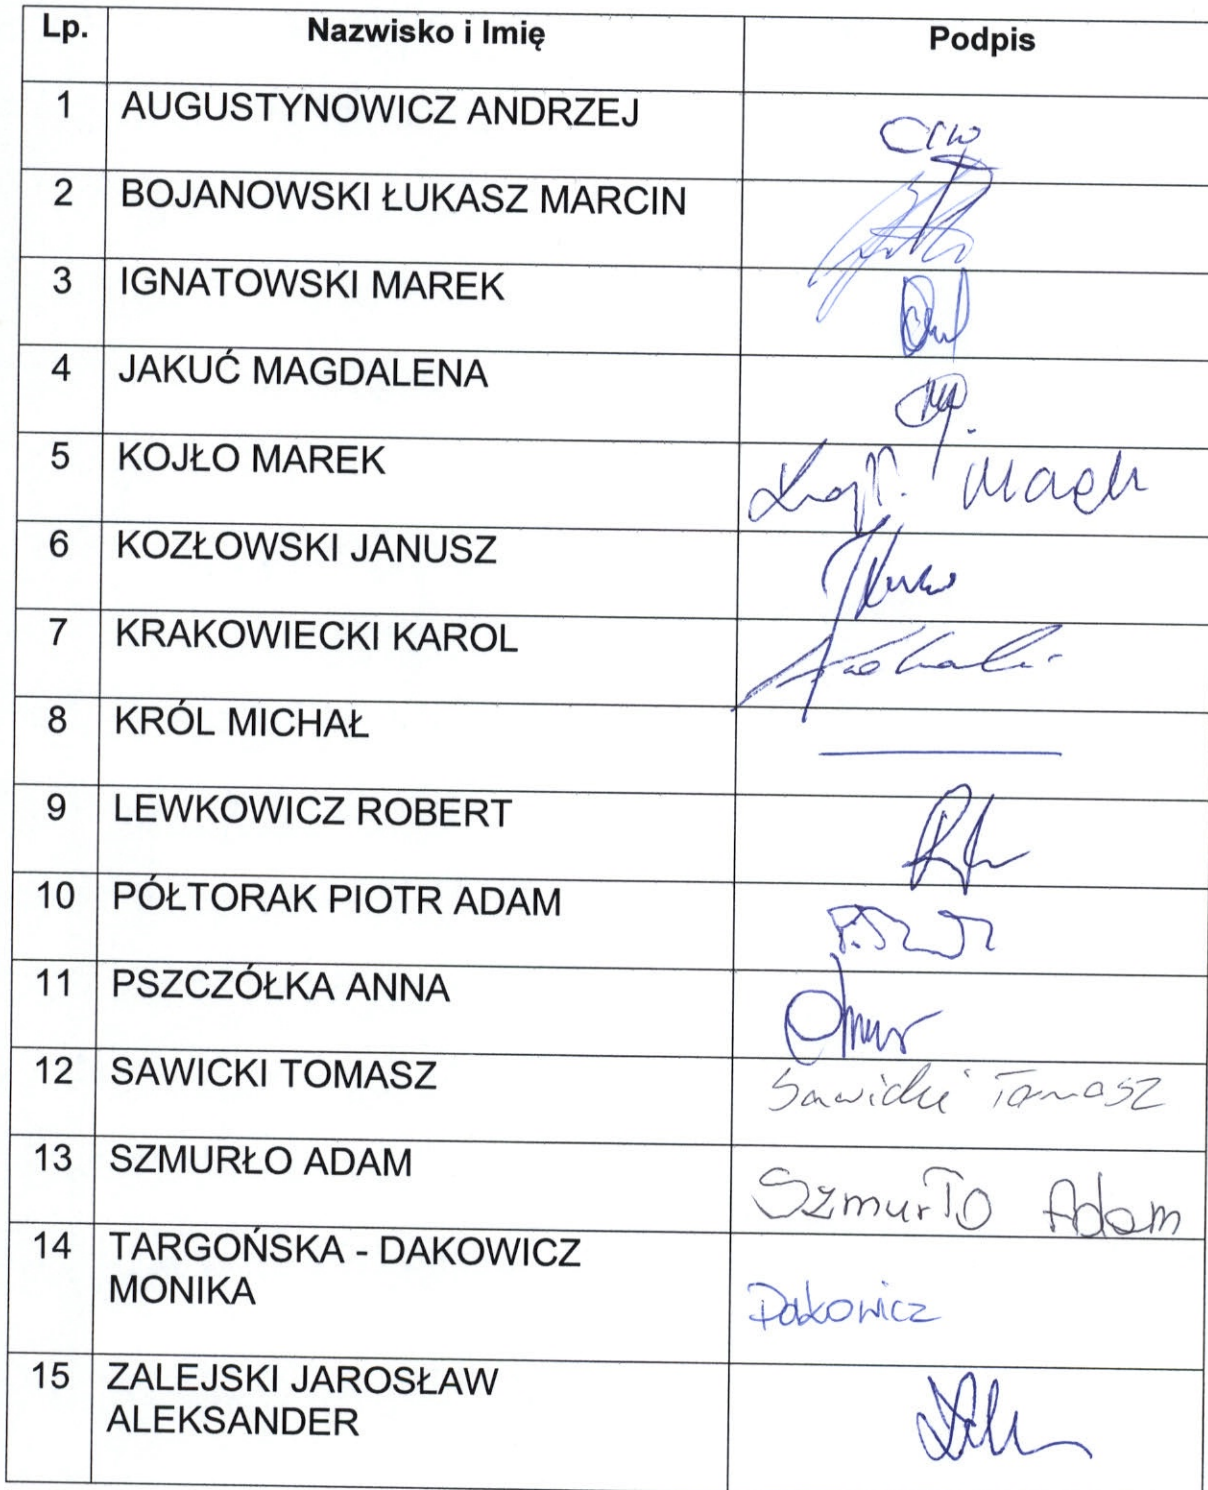 Lp. Nazwisko i Imię Podpis
1 AUGUSTYNOWICZ ANDRZEJ
2 BOJANOWSKI ŁUKASZ MARCIN
3 IGNATOWSKI MAREK
4 JAKUĆ MAGDALENA
5 KOJŁO MAREK
6 KOZŁOWSKI JANUSZ
7 KRAKOWIECKI KAROL
8 KRÓL MICHAŁ
9 LEWKOWICZ ROBERT
10 PÓŁTORAK PIOTR ADAM
11 PSZCZÓŁKA ANNA
12 SAWICKI TOMASZ Sawicki Tomasz
13 SZMURŁO ADAM Szmurło Adam
14 TARGOŃSKA - DAKOWICZ
MONIKA Dakowicz
15 ZALEJSKI JAROSŁAW
ALEKSANDER